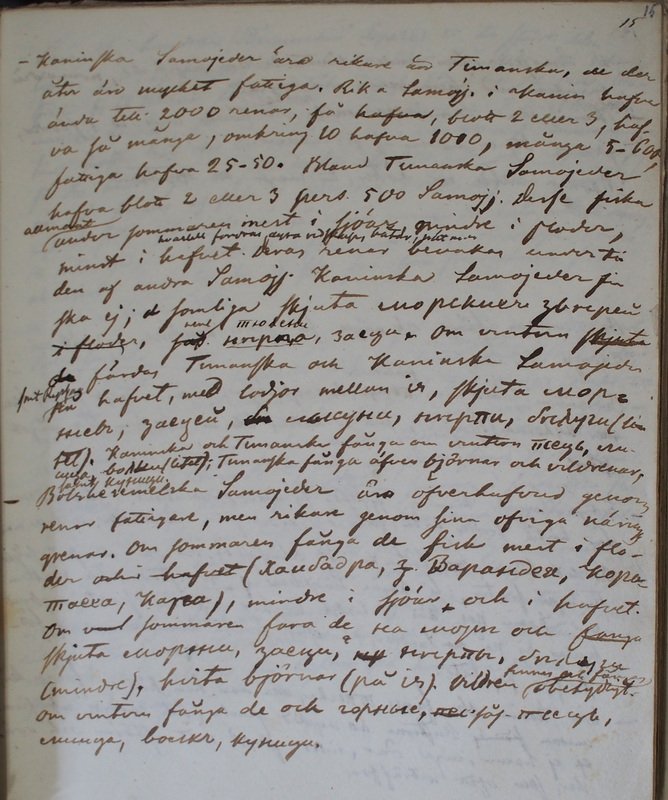 15 15
– Kaninska Samojeder äro rikare än Timanska, de der
åter äro mycket fattiga. Rika Samojj. i Kanin hafva
ända till 2000 renar, så hafva, blott 2 eller 3, haf-
va så många, omkring 10 hafva 1000, många 5–600,
fattiga hafva 25–50. Bland Timanska Samojeder
hafva blott 2 eller 3 pers. 500 Samojj. Desse fiska
allmänt
under sommaren mest i sjöar, mindre i floder,
minst i hafvet. Deras renar bevakas under ti-
den af andra Samojj. Kaninska Samojeder fi-
ska ej; somliga skjuta морскихъ звѣрей
i floder, тюлени
нерпа, заецъ. Om vintern skjuta
färdas Timanska och Kaninska Samojeder
på hafvet, med lodjor mellan is, skjuta мор-
жевъ, заецей, нерпы, бѣлуги
Kaninska och Timanska fånga om vintern песцъ, ли-
Timanska fånga äfven björnar och vildrenar,
куницы.
Bolshesemelska Samojeder äro öfverhufvud genom
renar fattigare, men rikare genom sina öfriga närings-
grenar. Om sommaren fånga de fisk mest i flo-
der och i hafvet (Хайбадра, Варандеи, Коро-
таеха, Кара), mindre i sjöar och i hafvet.
Om sommaren fara de на море och fånga
skjuta моржи, заецы, нерпы,
(mindre), hvita björnar (på is). Vildren obetydligt.
Om vintern fånga de och горные, песцъ,
лисица, волкъ, куницы.